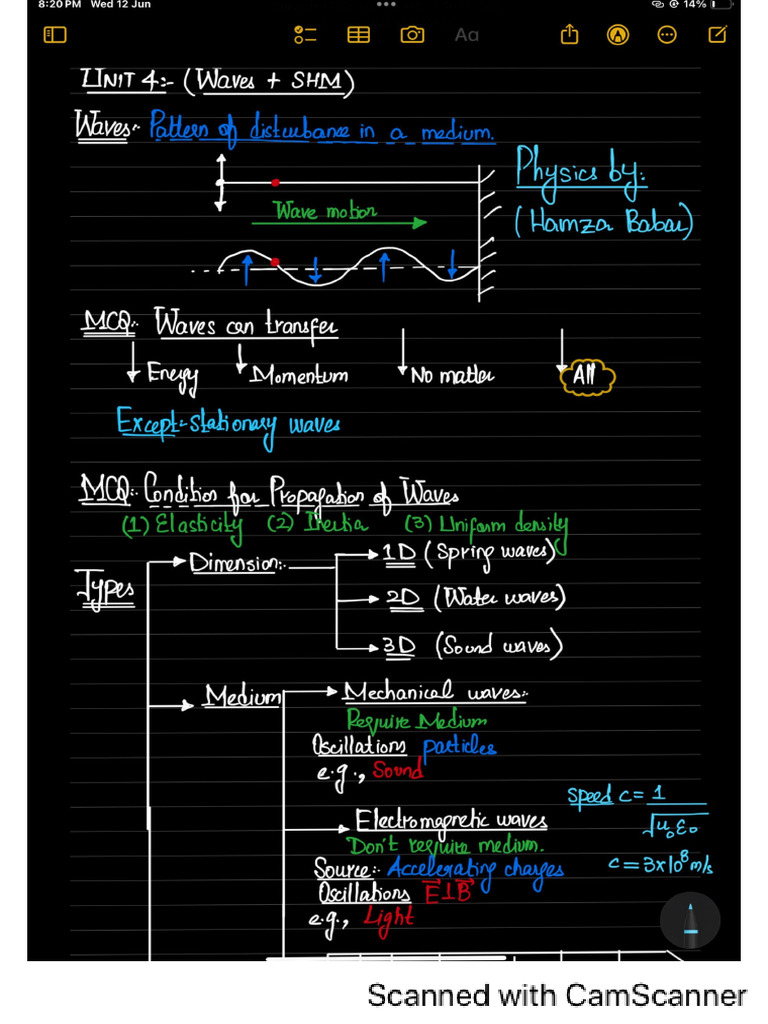 8:20 PM Wed 12 Jun
14%
Aa
UNIT 4:- (Waves + SHM)
Waves:- Pattern of disturbance in a medium.
Physics by:
(Hamza Babar)
Wave motion
MCQ:- Waves can transfer
Energy Momentum No matter All
Except:- stationary waves
MCQ:- Condition for Propagation of Waves
(1) Elasticity (2) Inertia (3) Uniform density
Types
Dimension:-
1D (Spring waves)
2D (Water waves)
3D (Sound waves)
Medium
Mechanical waves:-
Require Medium
Oscillations particles
e.g., Sound
Speed c = 1
√μ₀ε₀
c = 3×10⁸ m/s
Electromagnetic waves
Don't require medium.
Source:- Accelerating charges
Oscillations E⃗⊥B⃗
e.g., Light
Scanned with CamScanner